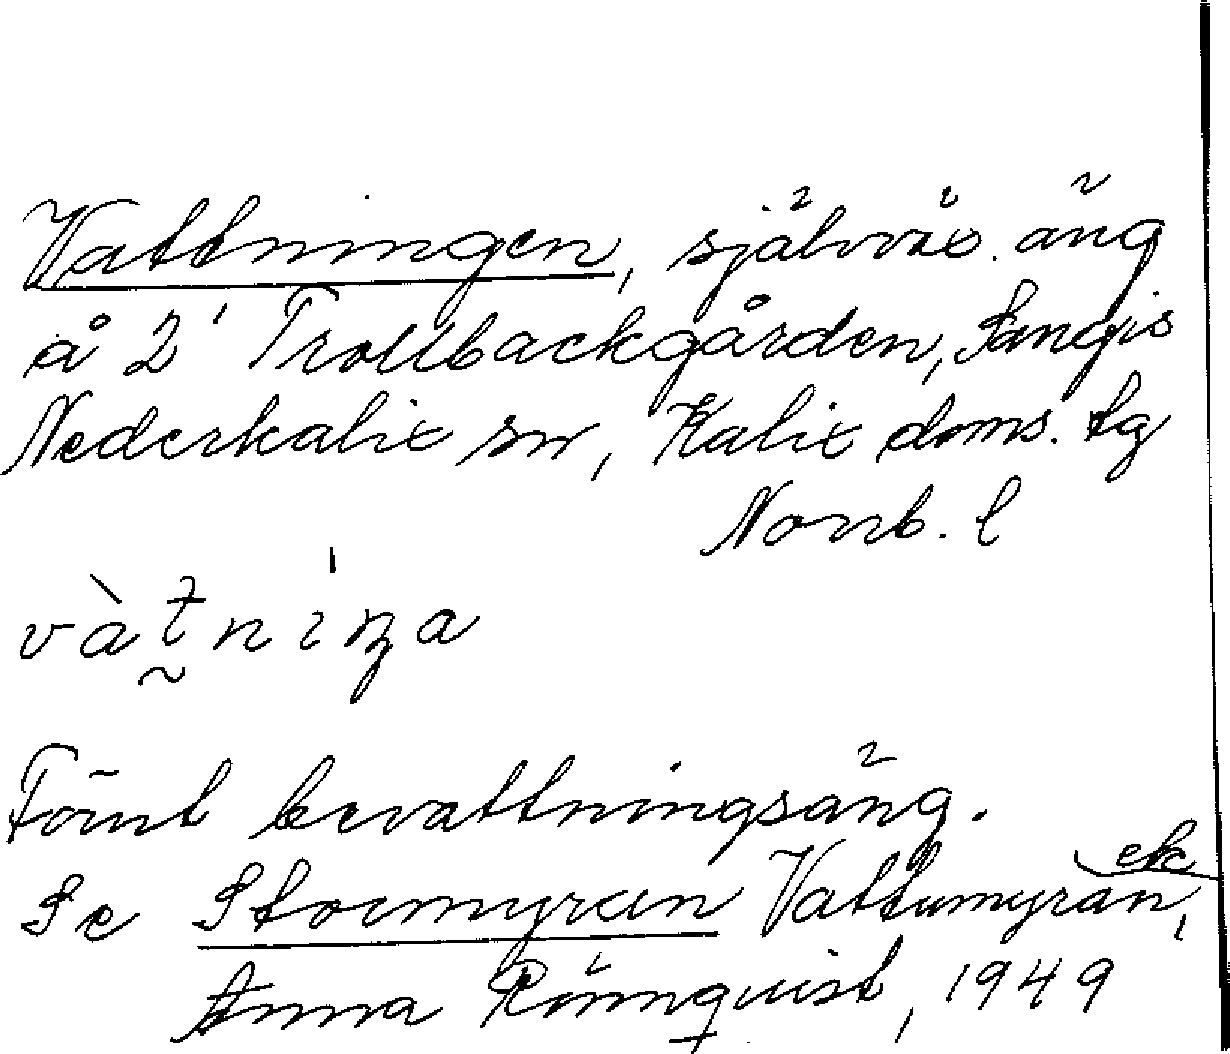 Vattningen, självväx. äng
å 2' Trollbackgården, Sangis
Nederkalix sn, Kalix doms. tg
Norrb. l
vàt̰níŋa
Förut bevattningsäng.
Se Stormyran Vattumyran,
Anna Rönnquist, 1949